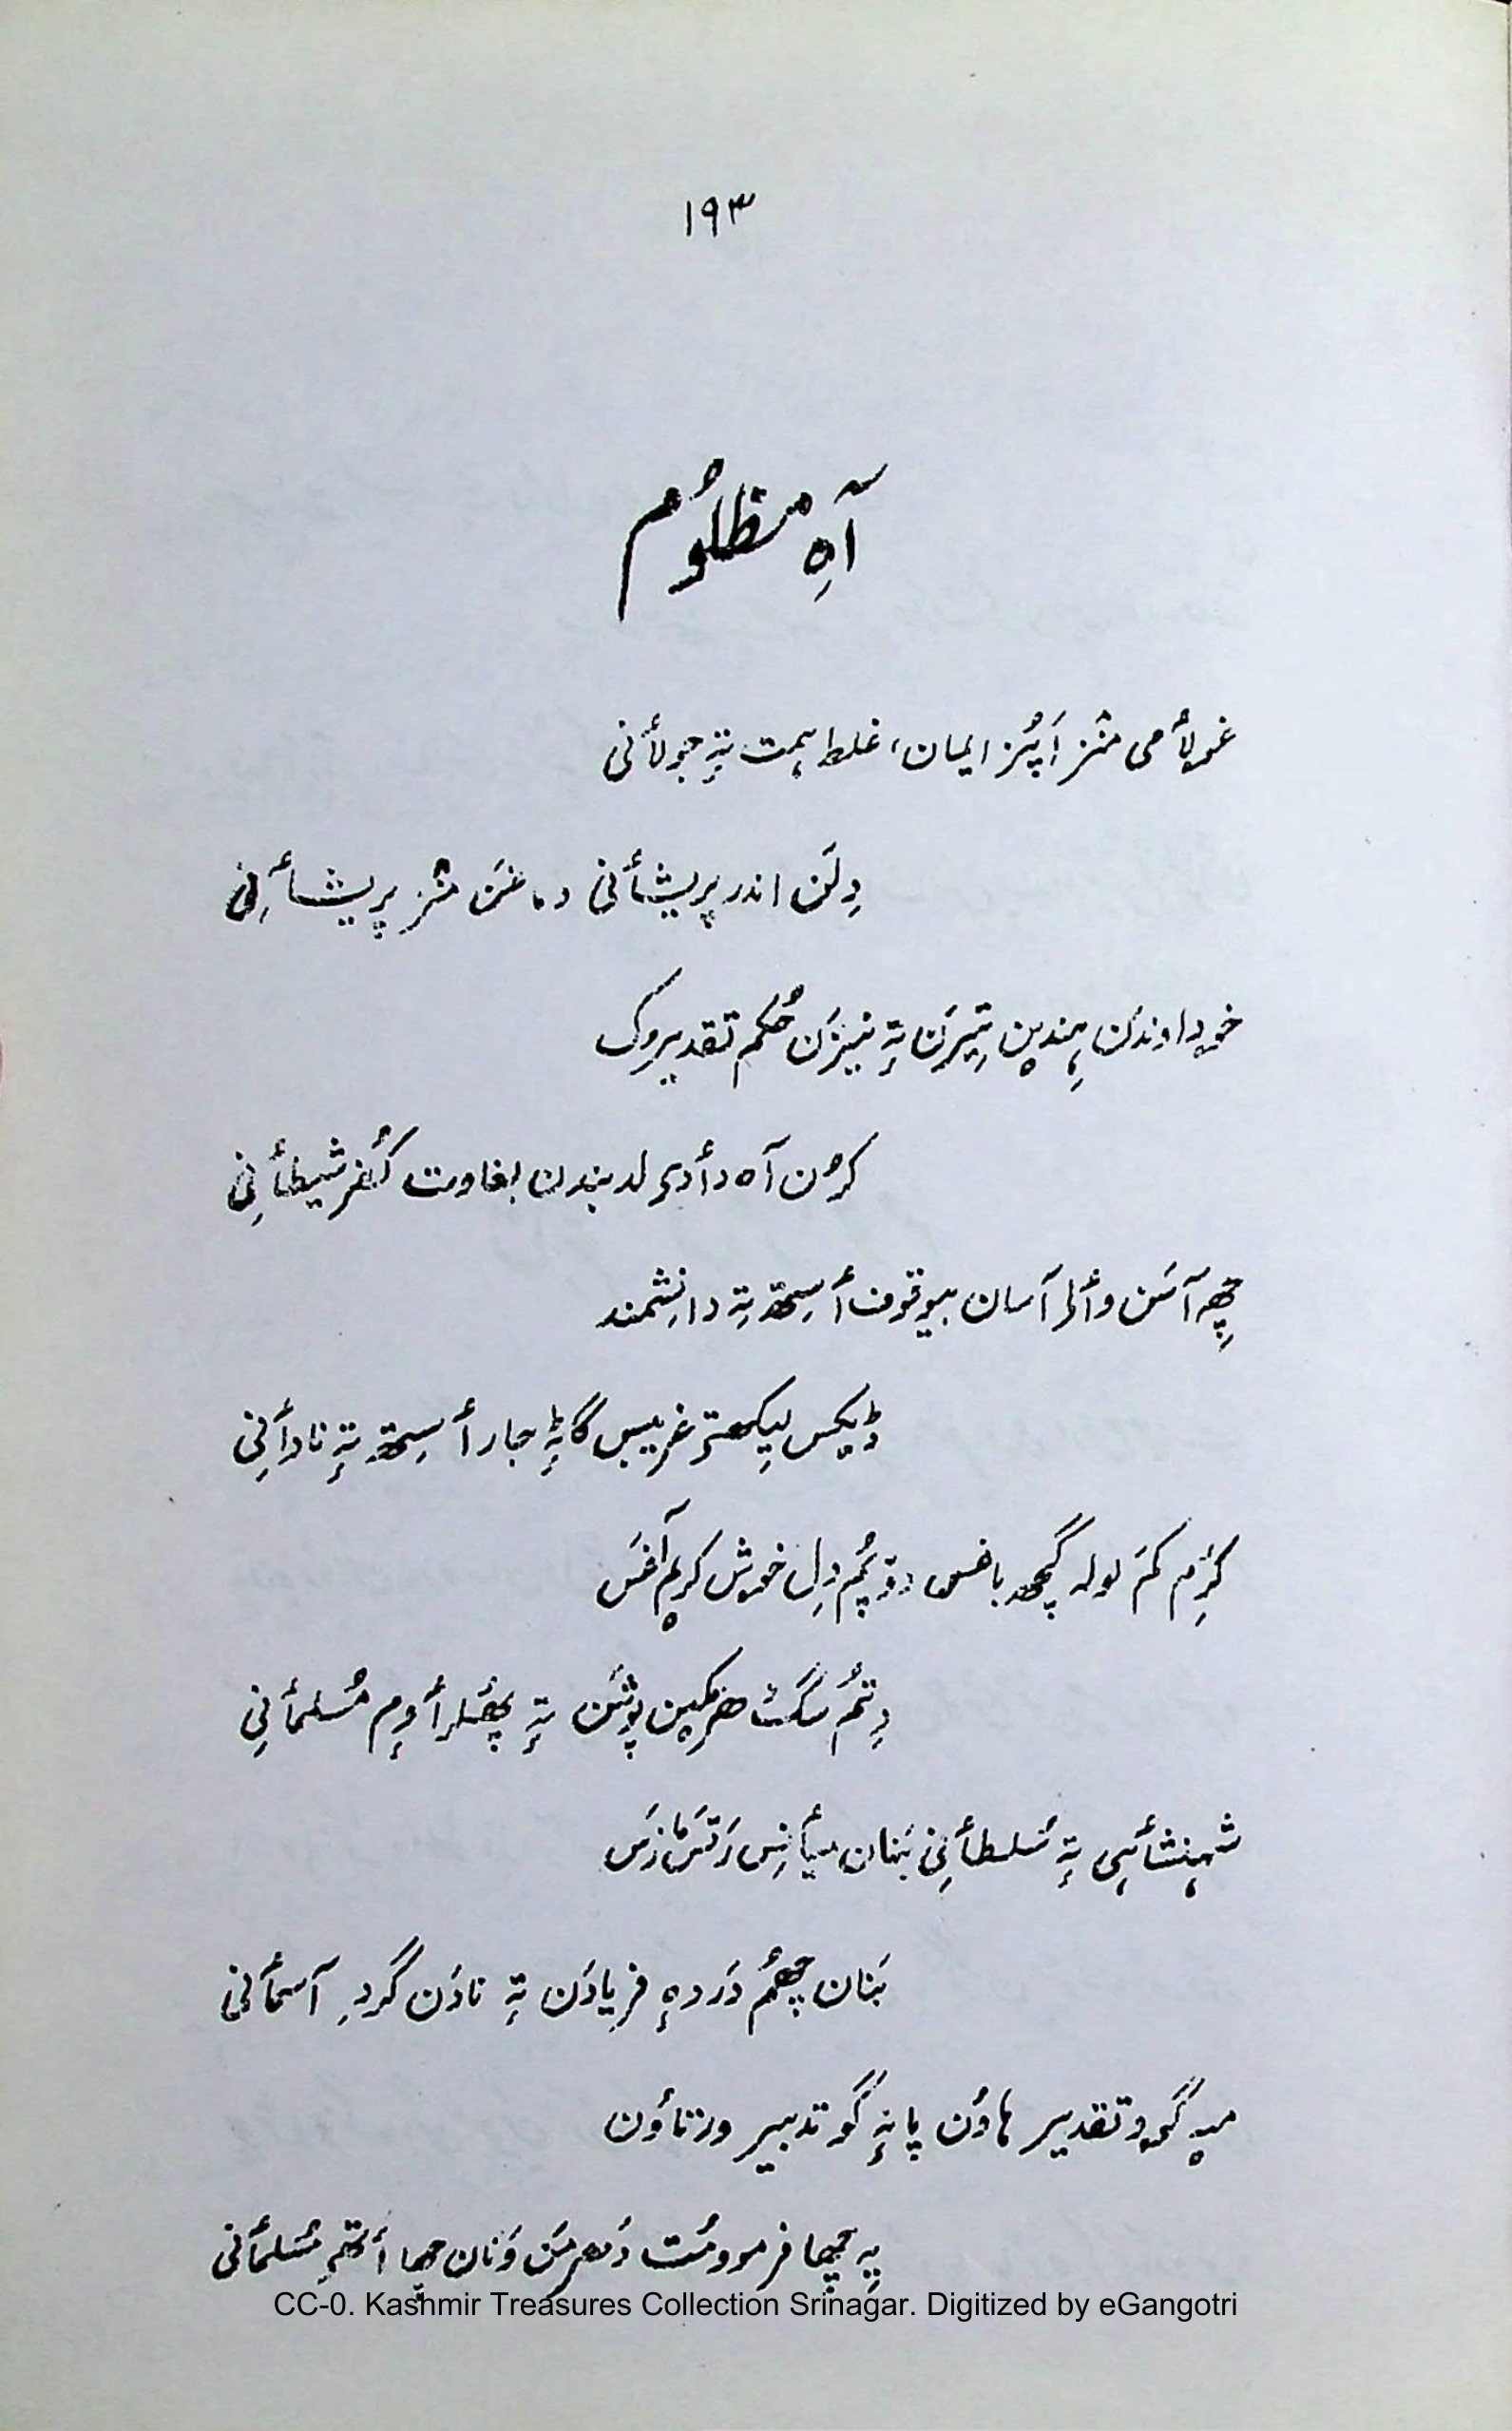 ۱۹۳
آہِ مظلوٗم
غۄلٲمی منٛز اَپُز ایمان، غلط ہمت تہٕ جولٲنی
دِلَن اندر پریشٲنی دماغَن منٛز پریشٲنِی
خۄداوندَن ہِندیٖن تیٖرَن تہٕ نیزَن حُکم تقدیرُک
کرُن آہ دٲدۍ لد بندن بغاوت کُفر شیطٲنی
چھِہ آسَن وٲلۍ آسان بیوقوف أسِتھ تہٕ دانِشمند
ٹیکس لیکھتۍ غریبس گاٹہٕ جار أسِتھ تہٕ نادٲنی
کرٕم کم لولہ گچھ باغس دۆپُم دِل خوش کرِیم آغَس
دِتُم سگ پوشَن تہٕ مُسلمٲنی
شہنشٲہی تہٕ سُلطٲنی بَنان میٲنِس رَتَس زَس
بَنان چھُم دَردہٕ فریادَن تہٕ نادَن گردِ آسمٲنی
میہِ گۄو تقدیر ہاوُن پانہٕ گو تدبیر ورتاوُن
یہِ چھا فرموومُت دَہرمَن وَنان چھا أتھۍ مُسلمٲنی
CC-0. Kashmir Treasures Collection Srinagar. Digitized by eGangotri